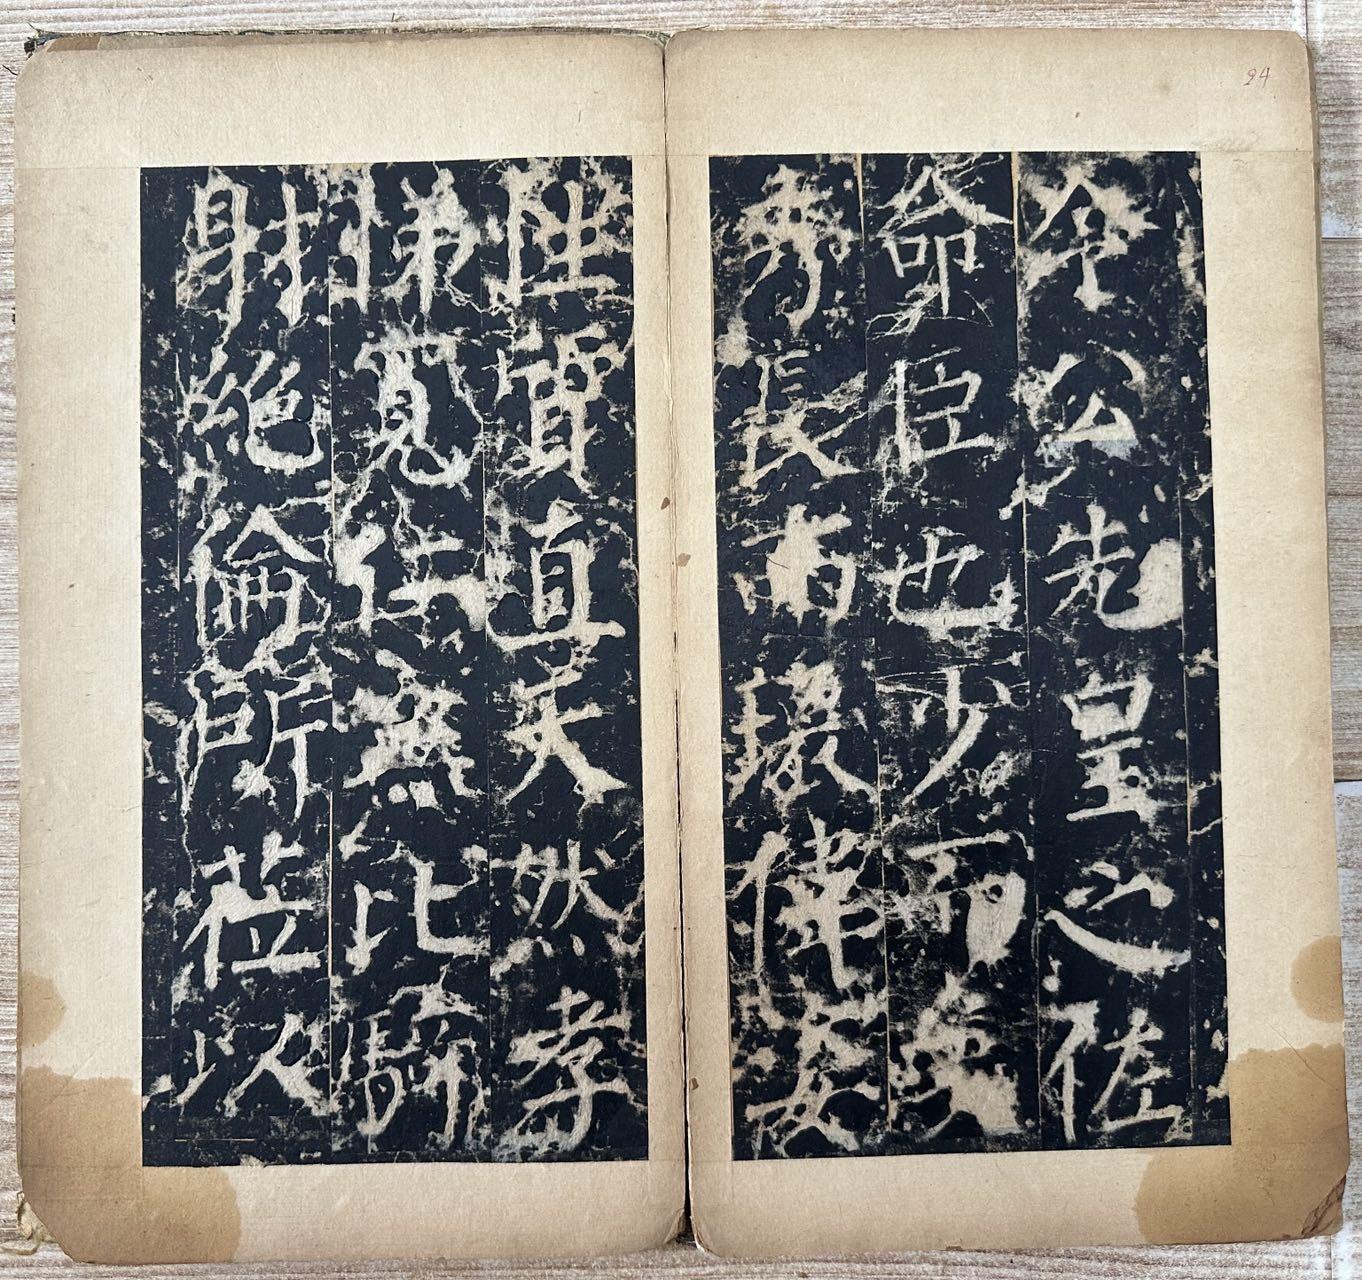 令公先皇之佐
命臣也少而
秀長而瓌偉姿
性質直天然孝
悌寬仁無比騎
射絕倫所莅以